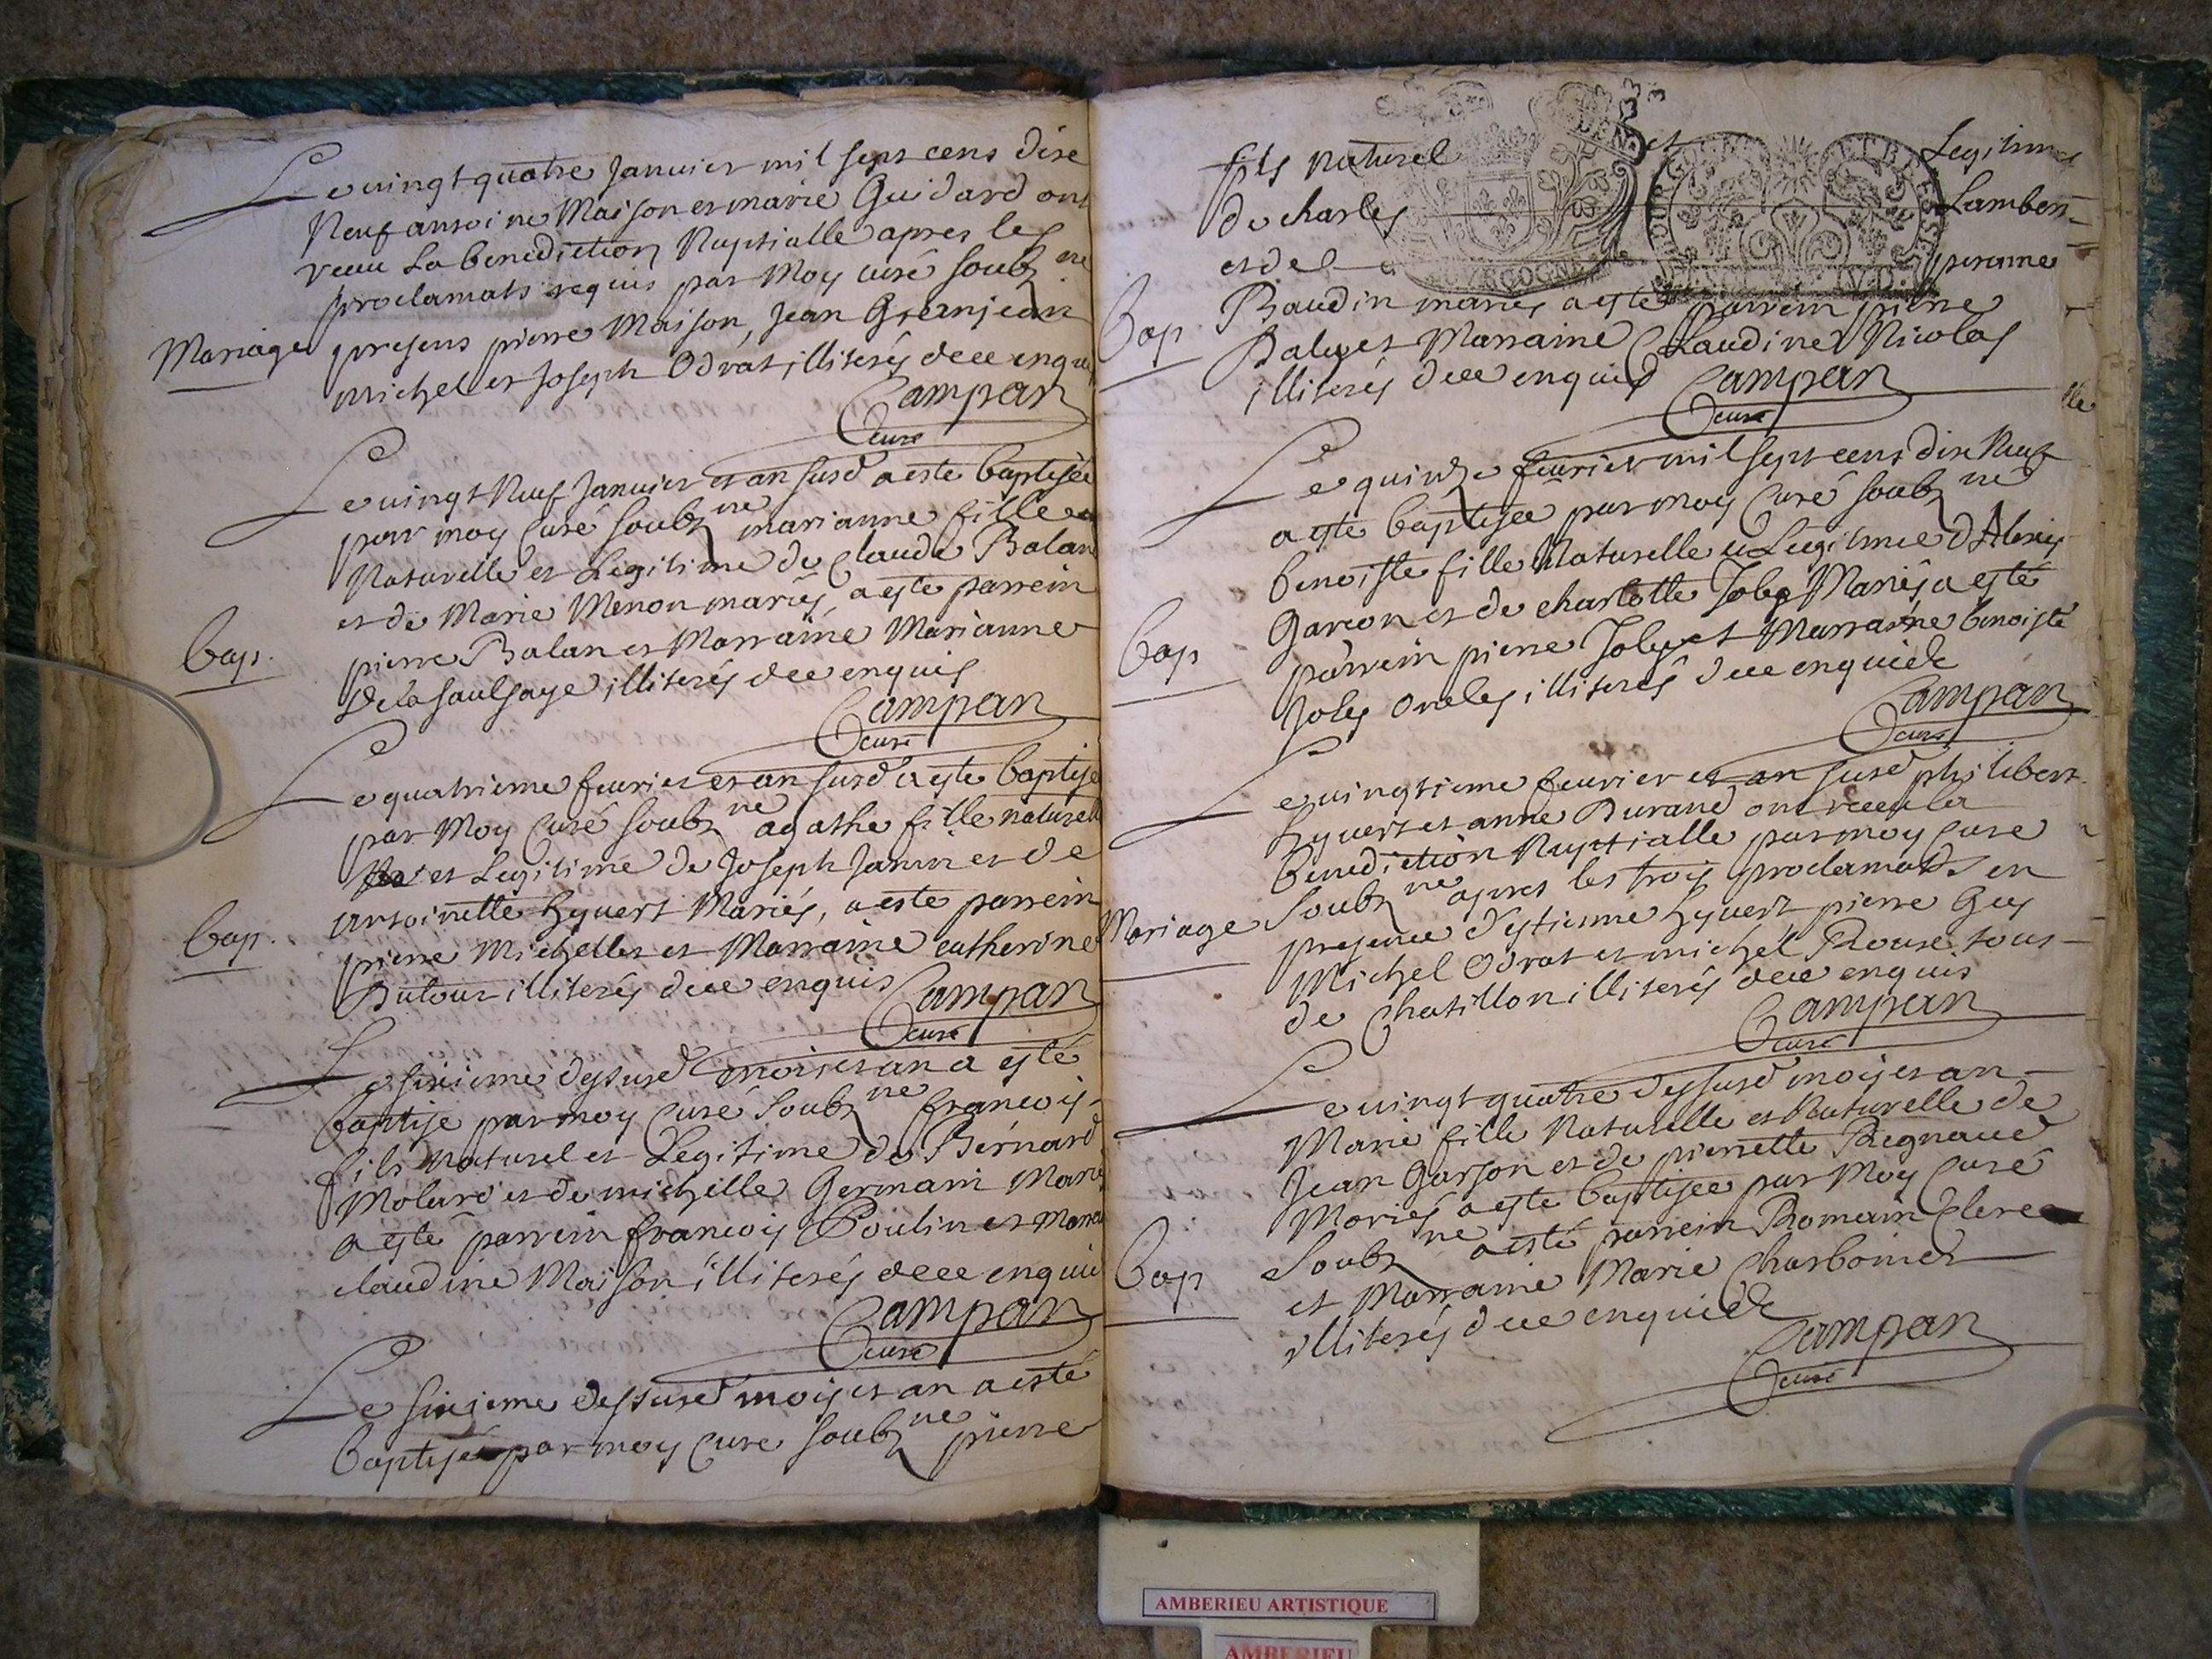 Le vingt quatre Janvier mil sept cens dise
Neuf antoine Maison et marie Guidard ont
receu La benediction Nuptialle apres les
proclamats requis par Moy curé soubz ne
Mariage presens pierre Maison, Jean Granjean
michel et Joseph Odrat illiterés de ce enquis
Campan
curé
Le vingt Neuf Janvier et an susd a esté baptisée
par moy Curé soubz ne marianne fille
Naturelle et Legitime de Claude Balan
et de Marie Menon mariés, a esté parrein
Bap. pierre Balan et Marraine Marianne
De la saulsaye illiterés de ce enquis
Campan
curé
Le quatrieme feurier et an susd a esté baptise
par Moy Curé soubz ne agathe fille naturell
et Legitime de Joseph Janin et de
antoinette hyvert Mariés, a esté parrein
Bap. pierre Michelles et Marraine catherine
Dutour illiterés de ce enquis
Campan
curé
Le sixieme dessusd mois et an a esté
baptise par moy Curé Soubz ne francois
fils naturel et Legitime de Bernard
Molard et de michelle Germain Mariés
a esté parrein francois Poulin et Marra
claudine Maison illiterés de ce enquis
Campan
curé
Le sixieme dessusd mois et an a esté
baptisé par moy Cure soubz ne pierre
3
fils naturel et Legitime
de charles Lambert
et de peronne
Bap Baudin mariés a esté parrein pierre
et Marraine Claudine Nicolas
illiterés de ce enquis
Campan
curé
Le quinze feurier mil sept cens dix Neuf
a esté baptisée par moy Curé soubz né
benoiste fille Naturelle et Legitimee d'Alexis
Garcon et de charlotte Joly Mariés a esté
Bap parrein pierre Joly et Marraine benoiste
Joly illiterés de ce enquis
Campan
curé
Le vingtieme feurier et an susd philibert
hyvert et anne Durand ont receu la
benediction Nuptialle par moy Cure
Mariage Soubz ne apres les trois proclamats en
presence d'estienne hyvert pierre Guy
Michel Odrat et michel Rouse tous
de Chatillon illiterés de ce enquis
Campan
curé
Le vingt quatre dessusd mois et an
Marie fille Naturelle et Naturelle de
Jean Garson et de pierrette Regnaud
Mariés a esté baptisee par Moy Curé
Soubz ne a esté parrein Romain Clere
Bap et Marraine Marie Charbonier
illiterés de ce enquis
Campan
curé
AMBERIEU ARTISTIQUE
AMBERIEU